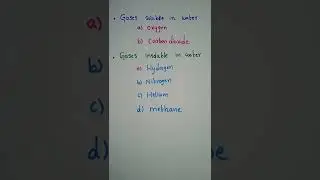 • Gases soluble in water
a) oxygen
b) Carbon dioxide
• Gases insoluble in water
a) Hydrogen
b) Nitrogen
c) Helium
d) methane